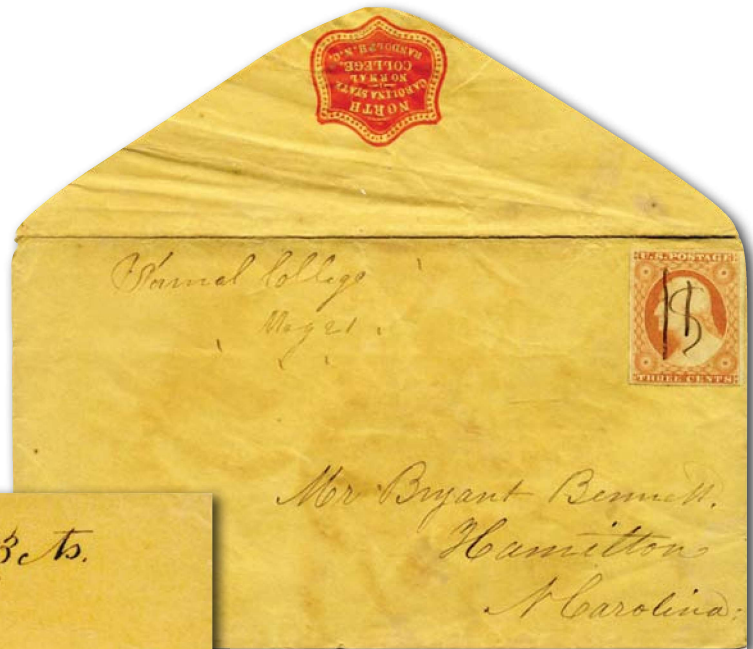 NORTH
CAROLINA STATE
NORMAL
COLLEGE.
RANDOLPH. N.C.
Normal College
May 21.
U.S. POSTAGE
THREE CENTS
Mr Bryant Bennett.
Hamilton
N Carolina
3 cts.